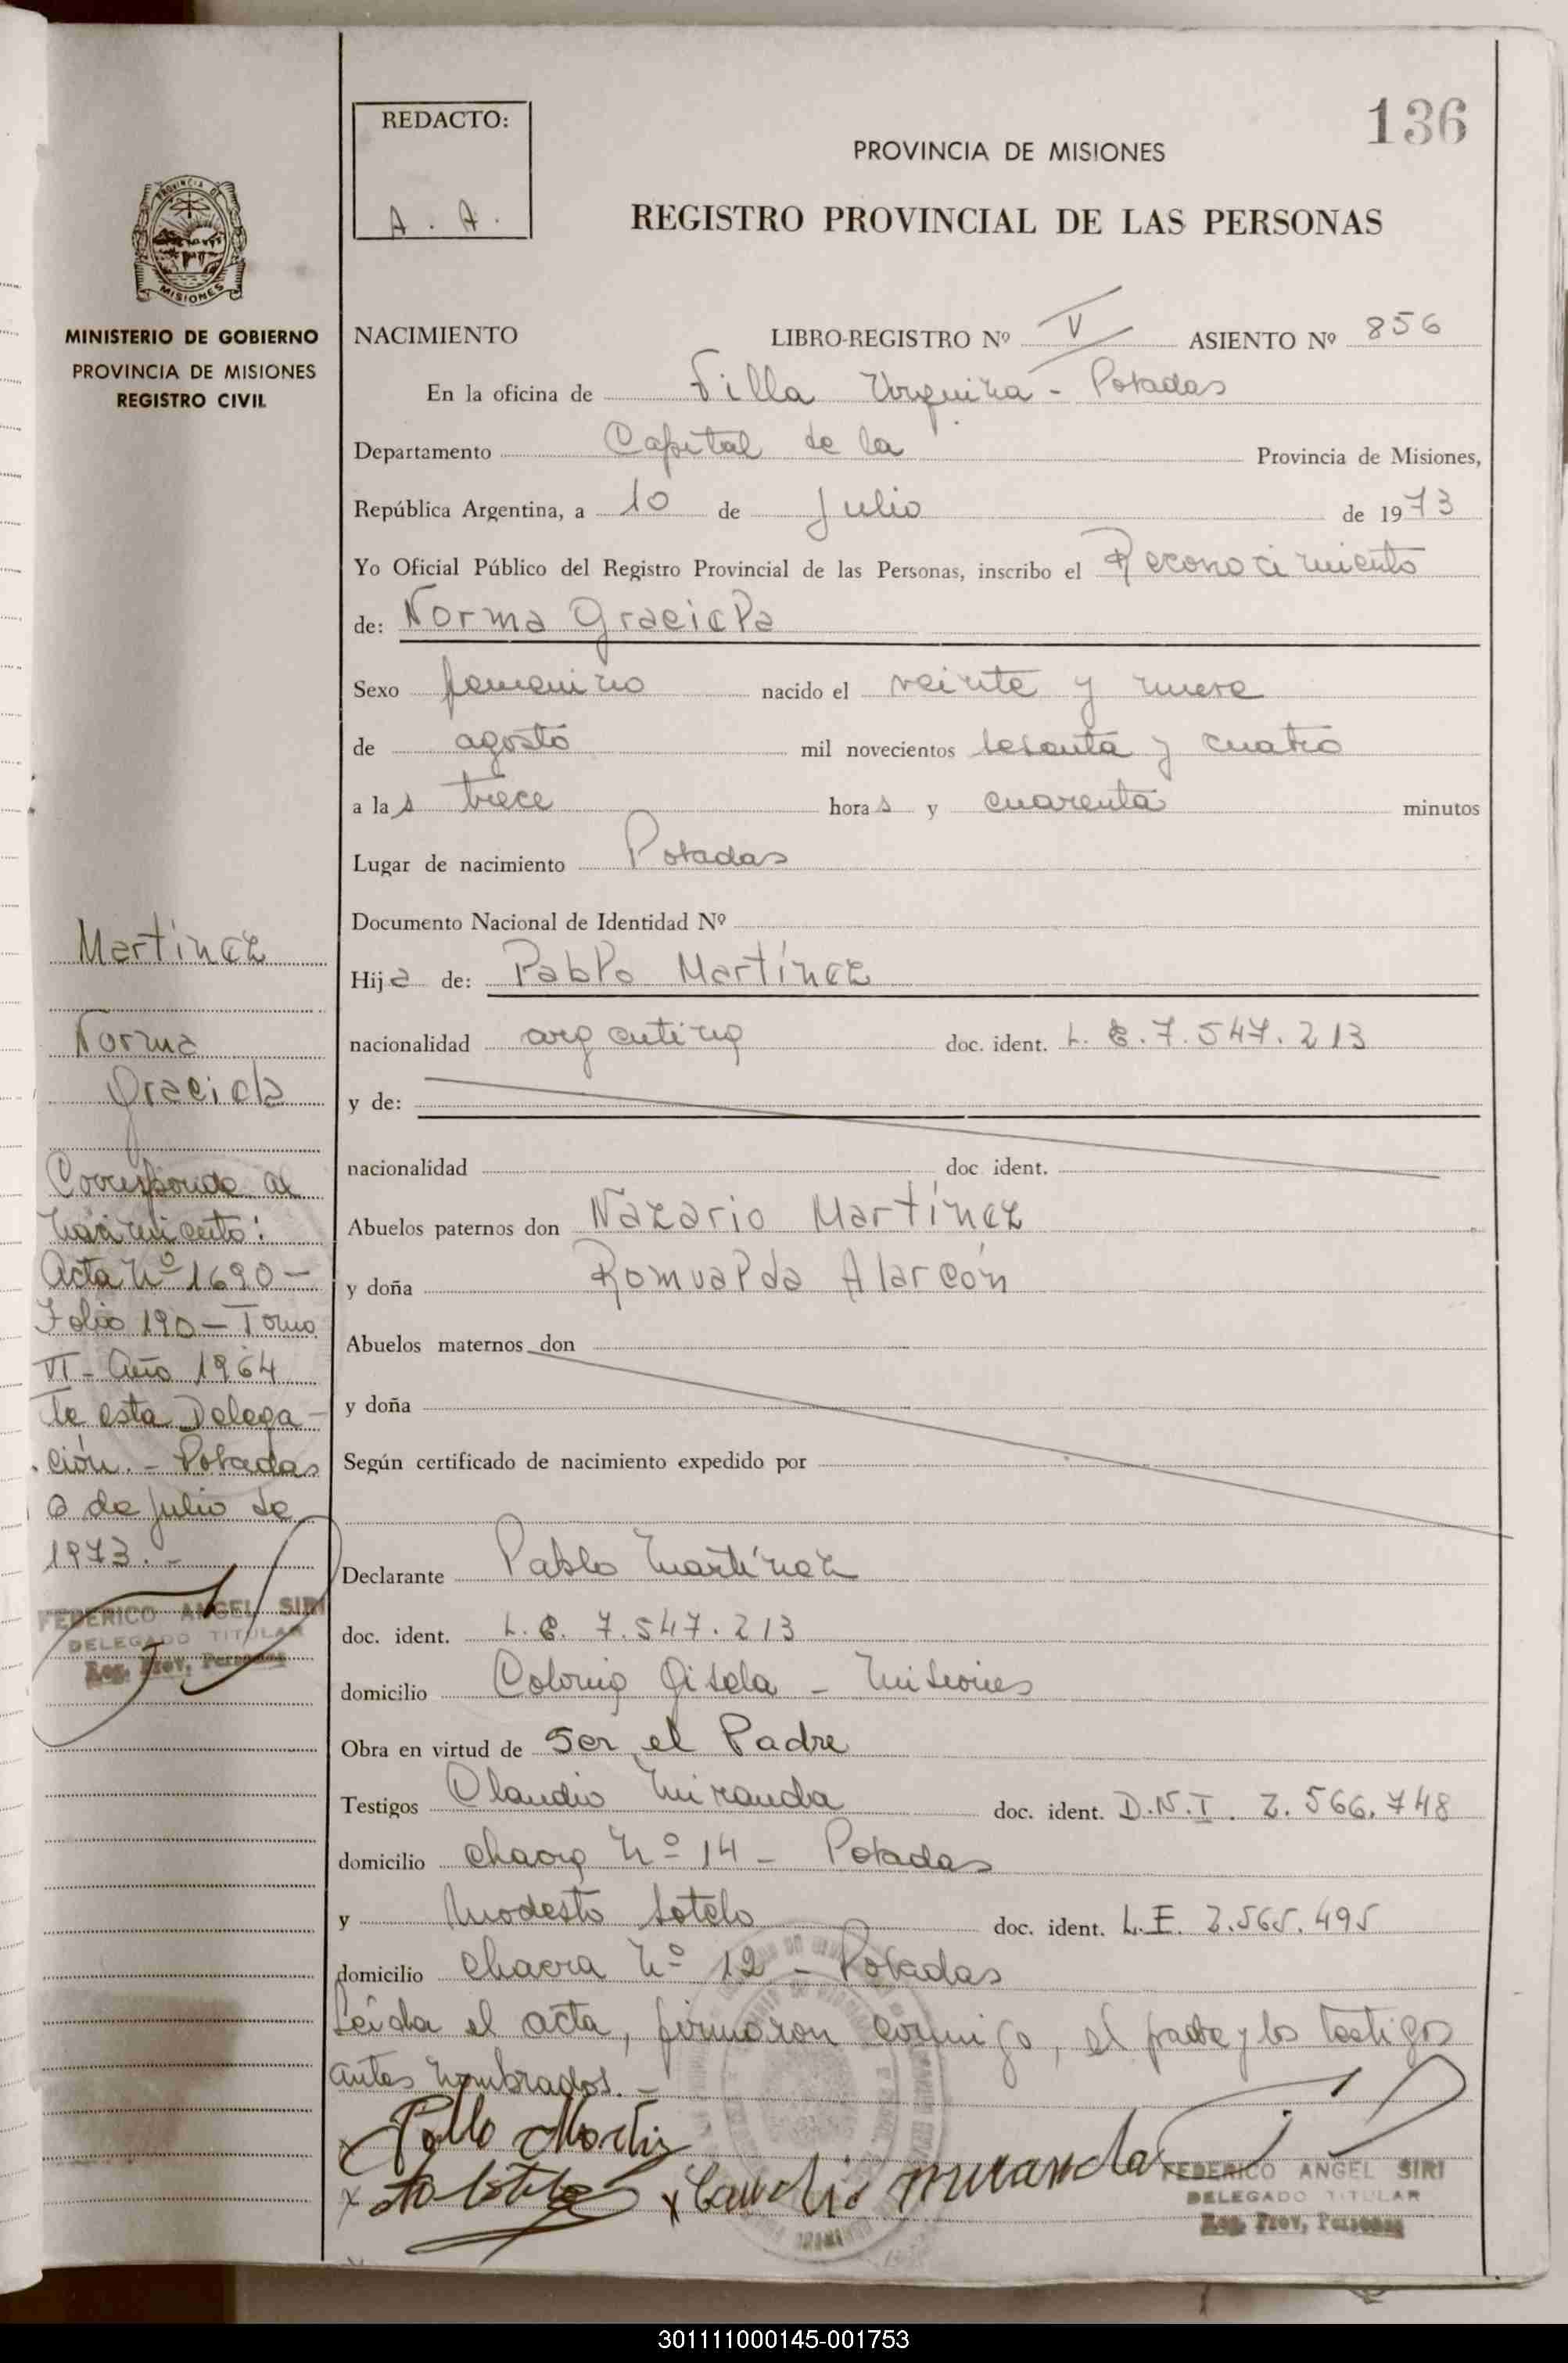 136
REDACTO:
A. A.
PROVINCIA DE MISIONES
REGISTRO PROVINCIAL DE LAS PERSONAS
MISIONES
MINISTERIO DE GOBIERNO
PROVINCIA DE MISIONES
REGISTRO CIVIL
NACIMIENTO LIBRO-REGISTRO Nº V ASIENTO Nº 856
En la oficina de Villa Urquiza - Posadas
Departamento Capital de la Provincia de Misiones,
República Argentina, a 10 de Julio de 1973
Yo Oficial Público del Registro Provincial de las Personas, inscribo el Reconocimiento
de: Norma Graciela
Sexo femenino nacido el veinte y nueve
de agosto mil novecientos sesenta y cuatro
a las trece horas y cuarenta minutos
Lugar de nacimiento Posadas
Documento Nacional de Identidad Nº
Hija de: Pablo Martínez
nacionalidad argentina doc. ident. L. E. 7.547.213
y de:
nacionalidad doc. ident.
Abuelos paternos don Nazario Martínez
y doña Romualda Alarcón
Abuelos maternos don
y doña
Según certificado de nacimiento expedido por
Declarante Pablo Martínez
doc. ident. L. E. 7.547.213
domicilio Colonia Gisela - Misiones
Obra en virtud de ser el Padre
Testigos Claudio Miranda doc. ident. D.N.I. 2.566.748
domicilio chacra Nº 14 - Posadas
y Modesto Sotelo doc. ident. L.E. 2.565.495
domicilio chacra Nº 12 - Posadas
Leída el acta, firmaron conmigo, el padre y los testigos
antes nombrados. -
x Pablo Martinez
x Claudio Miranda
FEDERICO ANGEL SIRI
DELEGADO TITULAR
Reg. Prov. Personas
Martínez
Norma
Graciela
Corresponde al
nacimiento:
Acta Nº 1690 -
Folio 190 - Tomo
VI - Año 1964
de esta Delega-
ción. - Posadas
6 de Julio de
1973. -
FEDERICO ANGEL SIRI
DELEGADO TITULAR
Reg. Prov. Personas
301111000145-001753